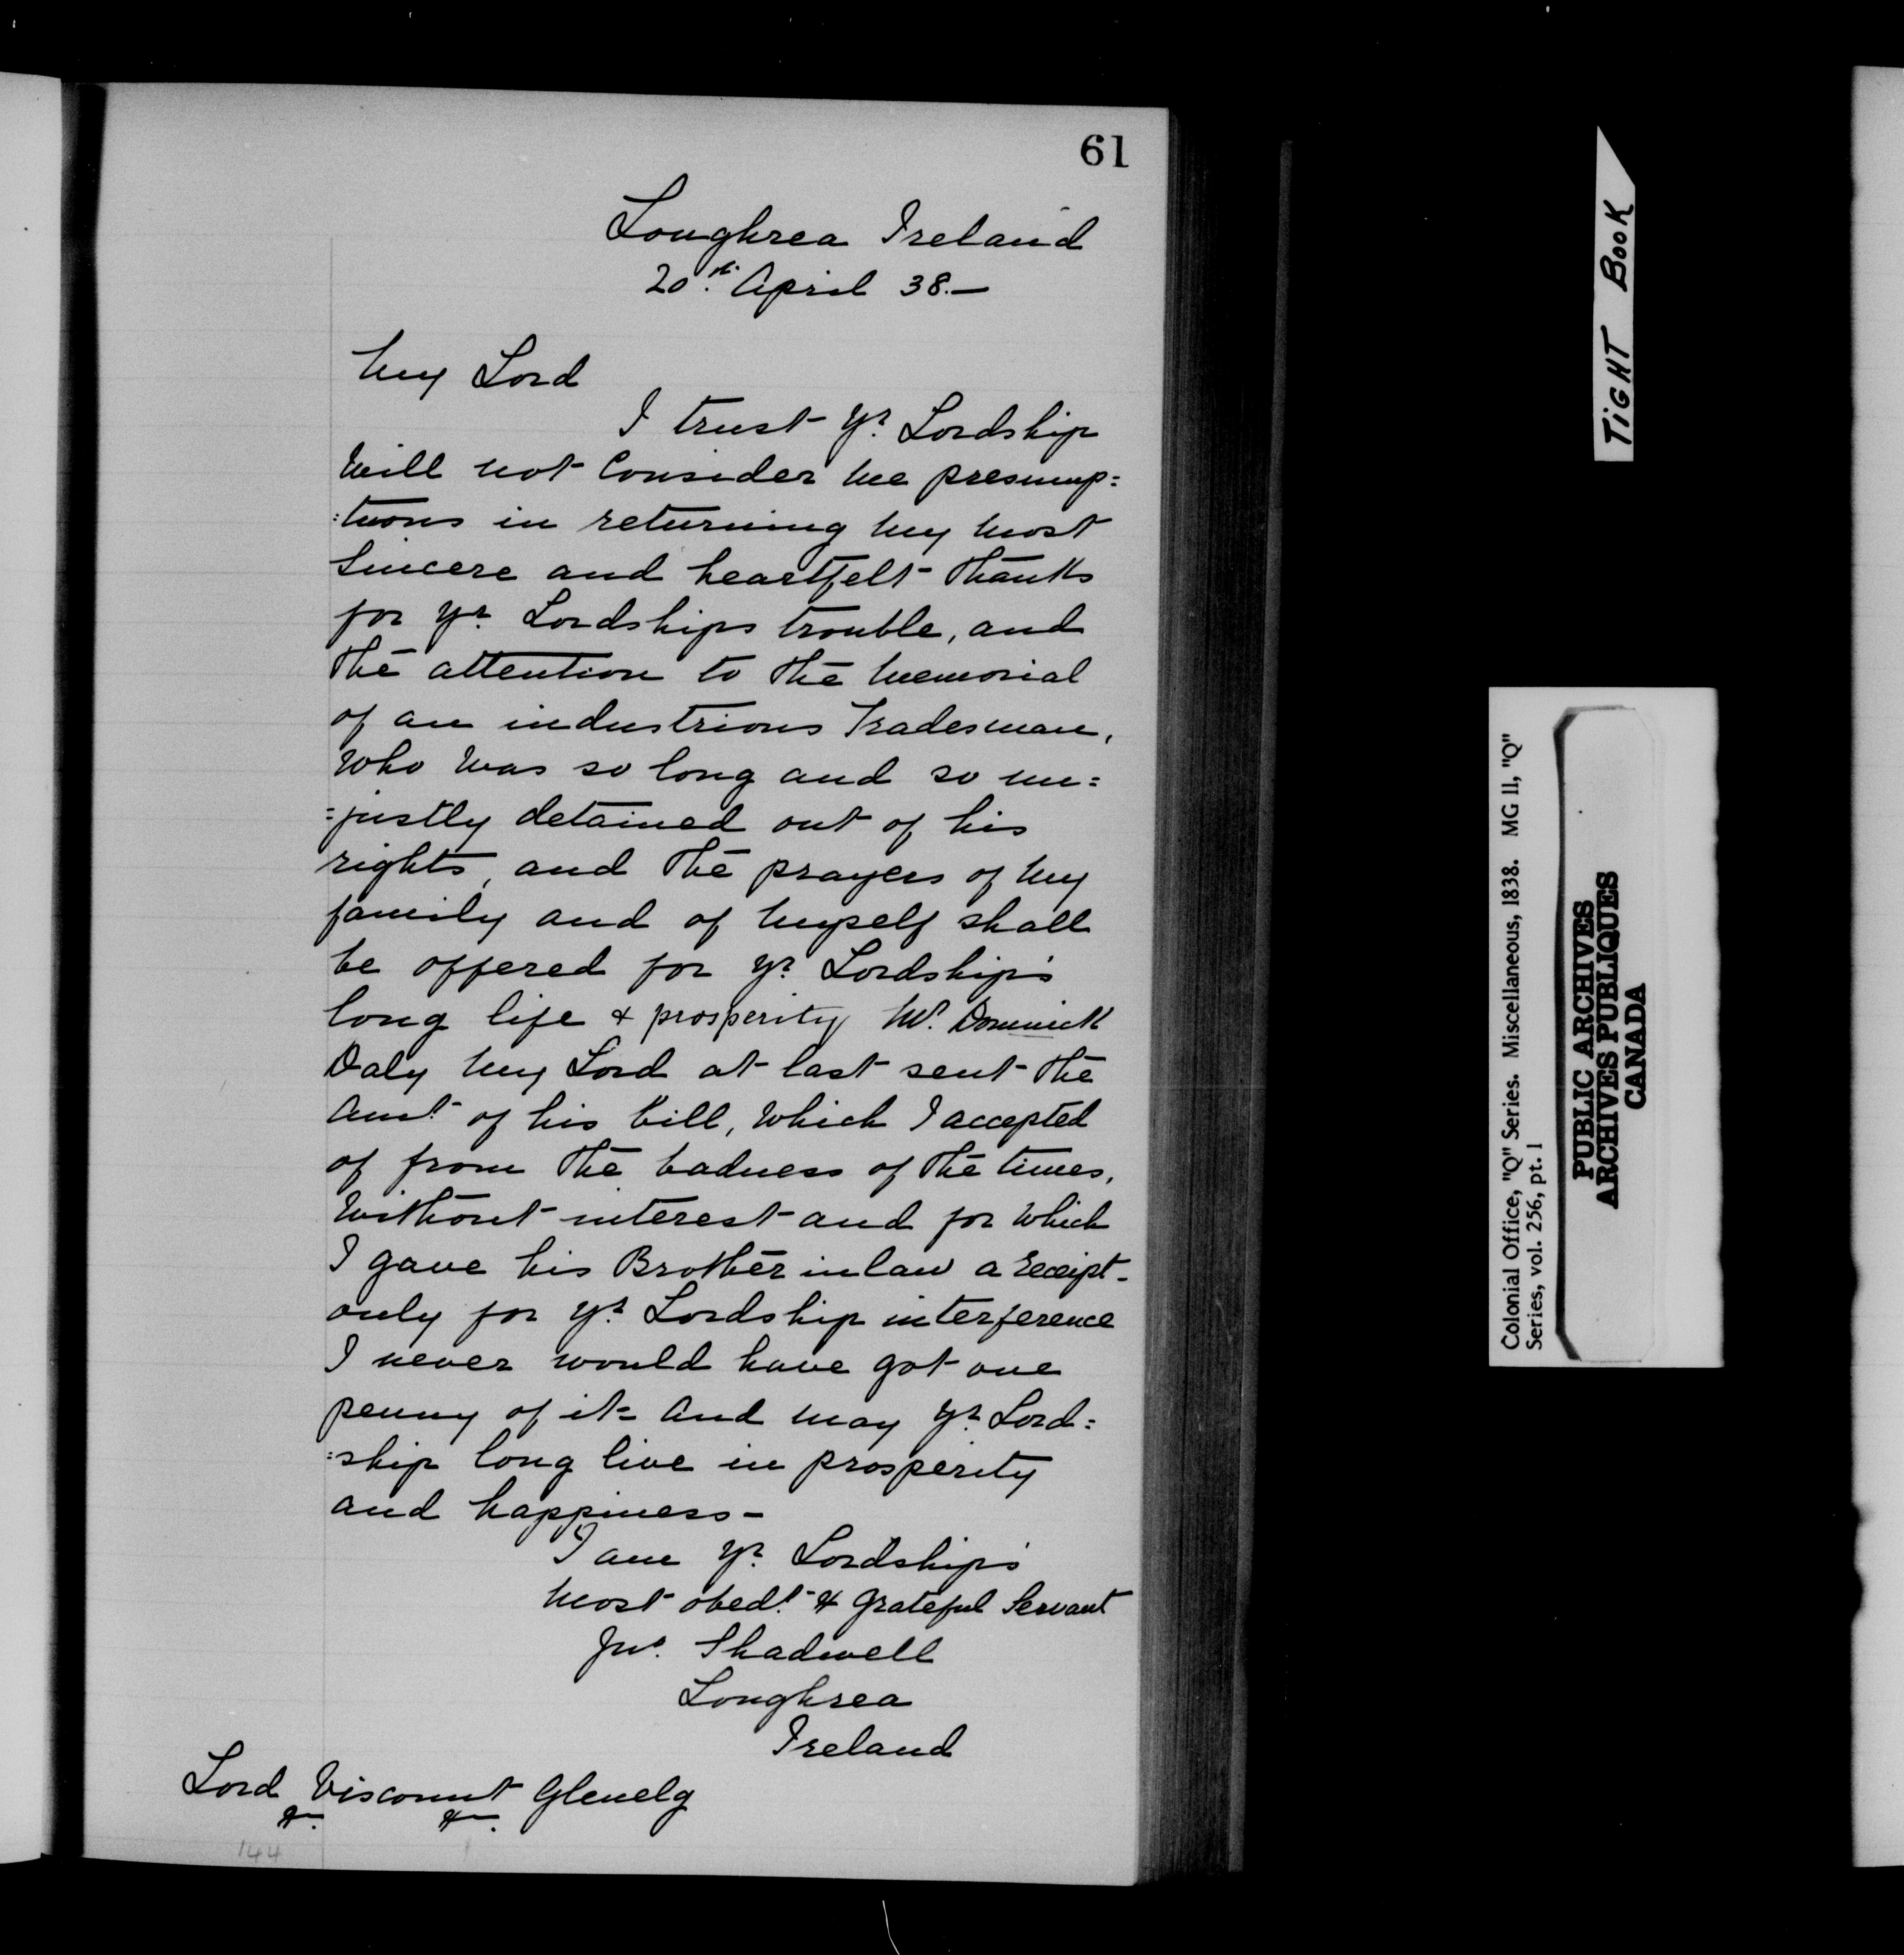 61
Loughrea Ireland
20th. April 38.—
My Lord
I trust yr. Lordship
Will not Consider me presump=
:tuous in returning my most
Sincere and heartfelt thanks
for yr. Lordships trouble, and
the attention to the Memorial
of an industrious Tradesman,
Who Was so long and so un=
=justly detained out of his
rights, and the prayers of my
family and of Myself shall
be offered for yr. Lordship's
long life & prosperity Mr. Dominick
Daly my Lord at last sent the
Amt. of his bill, Which I accepted
of from the badness of the times,
Without interest and for Which
I gave his Brother in law a receipt-
only for yr. Lordship interference
I never would have got one
penny of it- and may yr. Lord=
:ship long live in prosperity
and happiness-
I am yr. Lordship's
Most obedt. & grateful Servant
Jno. Shadwell
Loughrea
Ireland
Lord Viscount Glenelg
&c. &c.
144
TIGHT BOOK
Colonial Office, "Q" Series. Miscellaneous, 1838. MG 11, "Q"
Series, vol. 256, pt. 1
PUBLIC ARCHIVES
ARCHIVES PUBLIQUES
CANADA